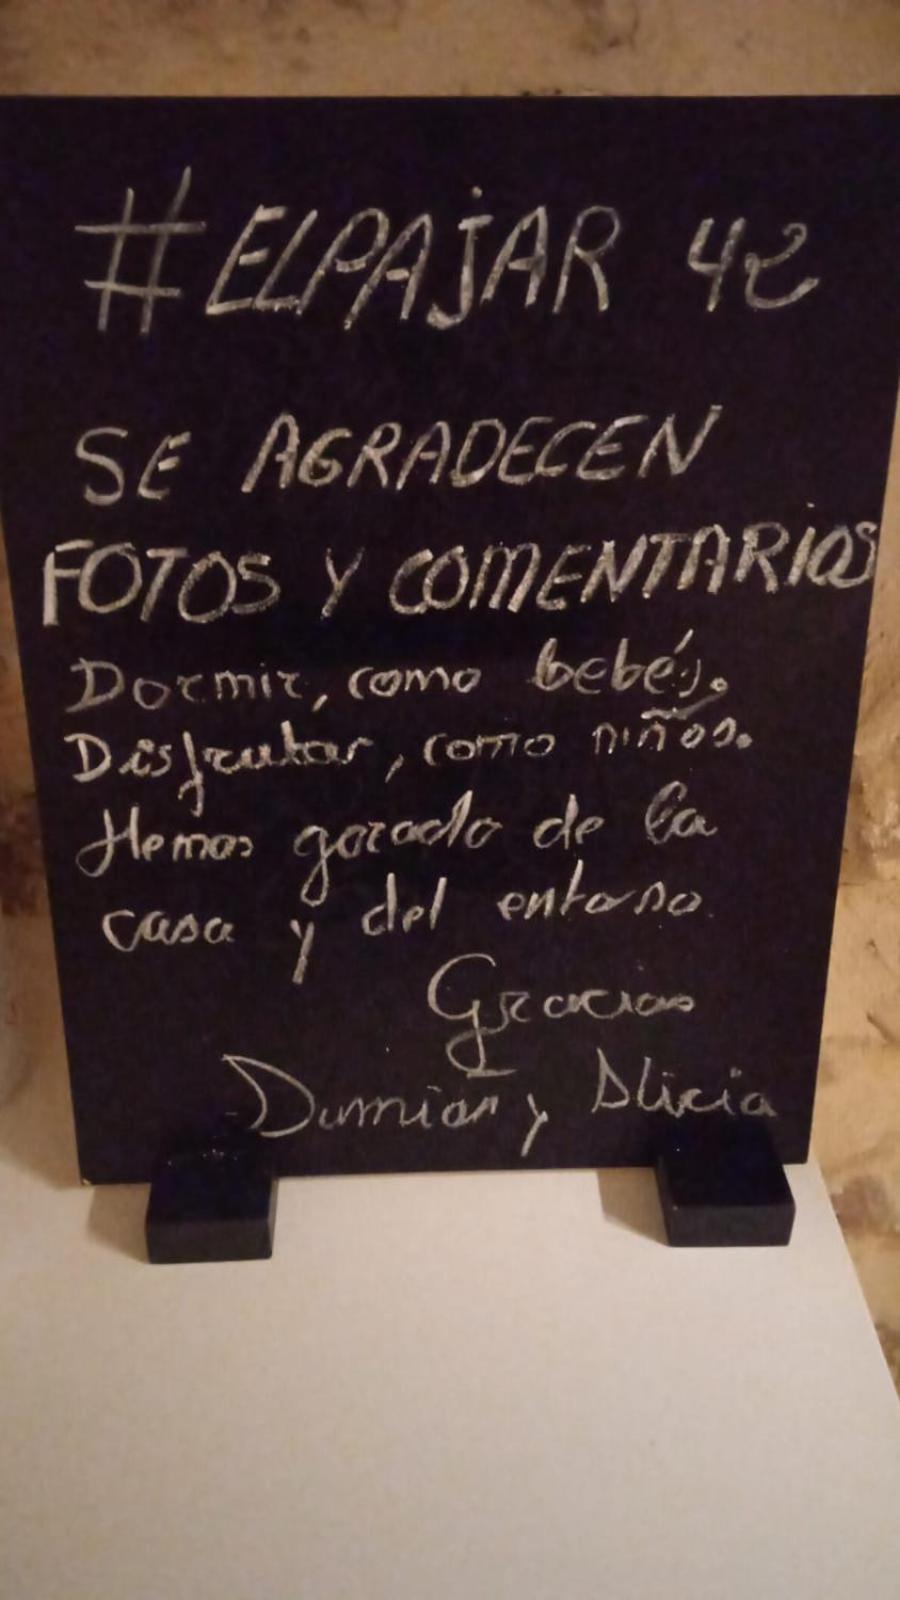 #ELPAJAR 42
SE AGRADECEN
FOTOS Y COMENTARIOS
Dormir, como bebés.
Disfrutar, como niños.
Hemos gozado de la
casa y del entorno
Gracias
Damian y Alicia